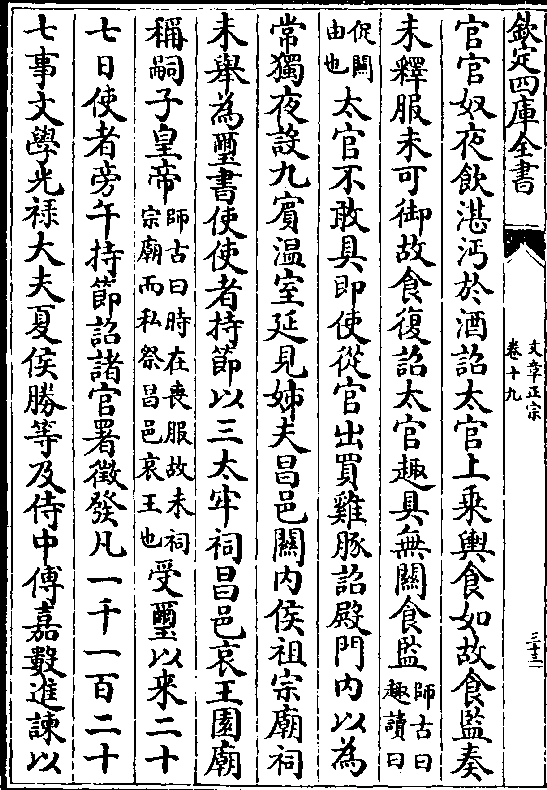 欽定四庫全書
文章正宗
卷十九
三十三
官官奴夜飲湛沔於酒詔太官上乘輿食如故食監奏
未釋服未可御故食復詔太官趣具無關食監師古曰趣讀曰
促關由也太官不敢具即使從官出買雞豚詔殿門内以為
常獨夜設九賓温室延見姊夫昌邑關内侯祖宗廟祠
未舉為璽書使使者持節以三太牢祠昌邑哀王園廟
稱嗣子皇帝師古曰時在喪服故未祠宗廟而私祭昌邑哀王也受璽以来二十
七日使者旁午持節詔諸官署徵發凡一千一百二十
七事文學光禄大夫夏侯勝等及侍中傅嘉數進諫以